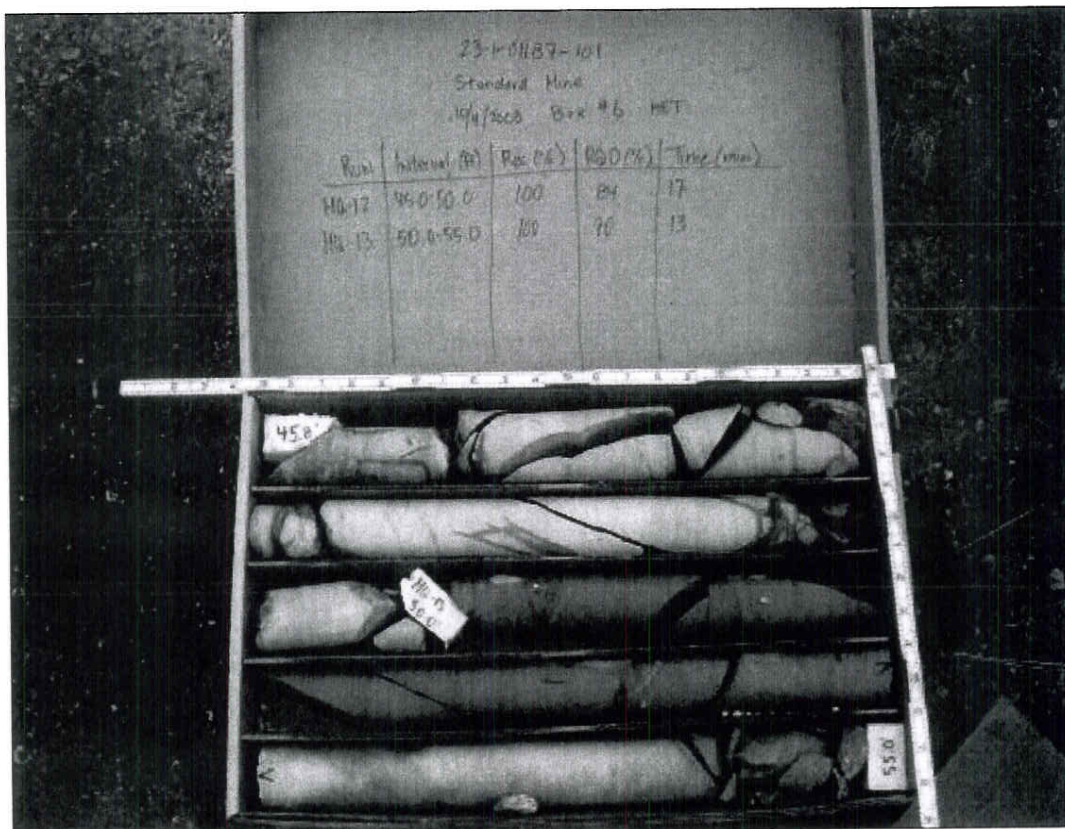 23-1-01187-101
Standard Mine
Box #6 HET
Run Interval (ft) Rec (%) RQD (%) Time (min)
HQ-12 45.0-50.0 100 84 17
HQ-13 50.0-55.0 100 90 13
45.8'
HQ-13
50.0'
V
55.0'